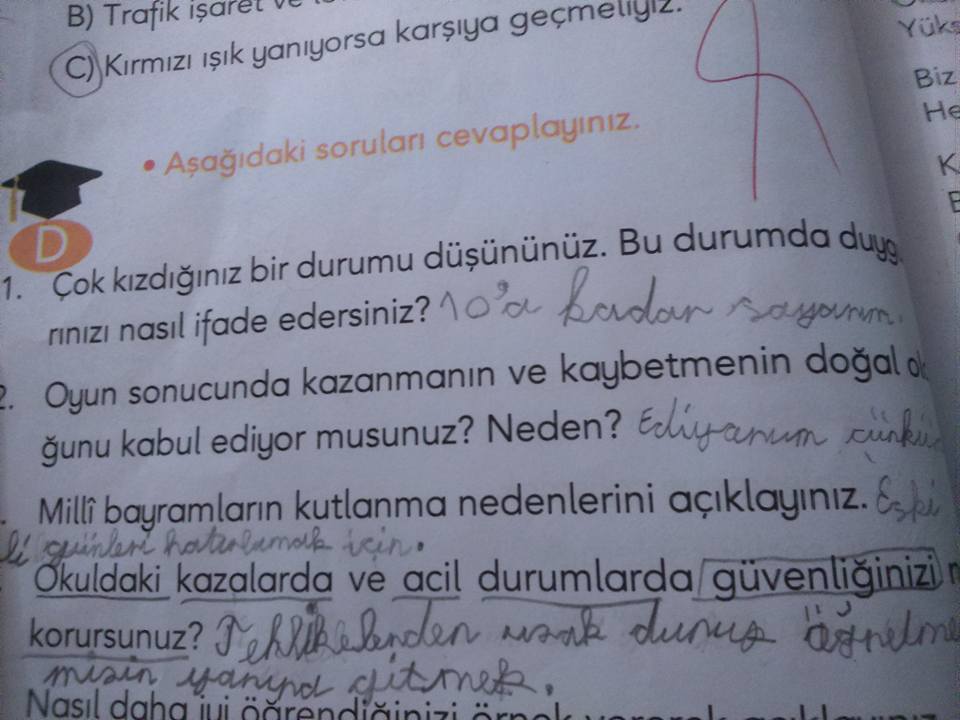 B) Trafik işaret ve
C) Kırmızı ışık yanıyorsa karşıya geçmeliyiz.
Yüks
Biz
He
• Aşağıdaki soruları cevaplayınız.
D
1. Çok kızdığınız bir durumu düşününüz. Bu durumda duyg
rınızı nasıl ifade edersiniz? 10'a kadar sayarım.
2. Oyun sonucunda kazanmanın ve kaybetmenin doğal ol
ğunu kabul ediyor musunuz? Neden? Ediyorum çünkü
Millî bayramların kutlanma nedenlerini açıklayınız. Eski
günleri hatırlamak için.
Okuldaki kazalarda ve acil durumlarda güvenliğinizi n
korursunuz? Tehlikelerden uzak durup öğretme
misin yanına gitmek.
Nasıl daha iyi öğrendiğinizi örnek vererek açıklayınız.